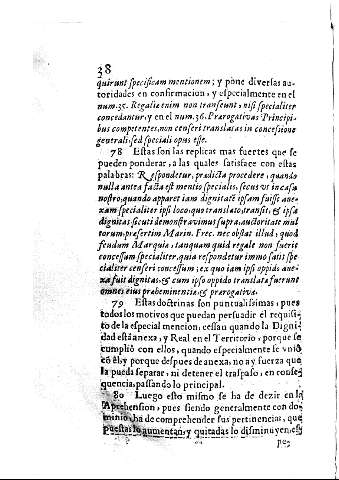 38
quirunt specificam mentionem; y pone diversas au-
toridades en confirmacion, y especialmente en el
num. 35. Regalia enim non transeunt, nisi specialiter
concedantur, y en el num. 36. Prærogativas Principi-
bus competentes, non censeri translatas in concesione
generali, sed speciali opus esse.
78 Estas son las replicas mas fuertes que se
pueden ponderar, a las quales satisface con estas
palabras: Respondetur, prædicta procedere, quando
nulla antea facta est mentio specialis, secus ut in casu
nostro, quando apparet iam dignitatē ipsam fuisse ane-
xam specialiter ipsi loco, quo translato, transit, & ipsa
dignitas, sicuti demonstravimus supra, auctoritate mul-
torum, præsertim Marin. Frec. nec obstat illud, quod
feudum Marquia, tanquam quid regale non fuerit
concessum specialiter, quia respondetur immo satis spe-
cialiter censeri concessum; ex quo iam ipsi oppido ane-
xa fuit dignitas, & cum ipso oppido translata fuerunt
omnes eius præheminencia, & prærogativa.
79 Estas doctrinas son puntualissimas, pues
todos los motivos que puedan persuadir el requisi-
to de la especial mencion, cessan quando la Digni-
dad està anexa, y Real en el Territorio, porque se
cumpliò con ellos, quando especialmente se vniò
con èl, y porque despues de anexa, no ay fuerça que
la pueda separar, ni detener el traspaso, en conse-
quencia, passando lo principal.
80 Luego esto mismo se ha de dezir en la
Aprehension, pues siendo generalmente con do-
minio, ha de comprehender sus pertinencias, que
puestas lo aumentan, y quitadas lo disminuyen, es